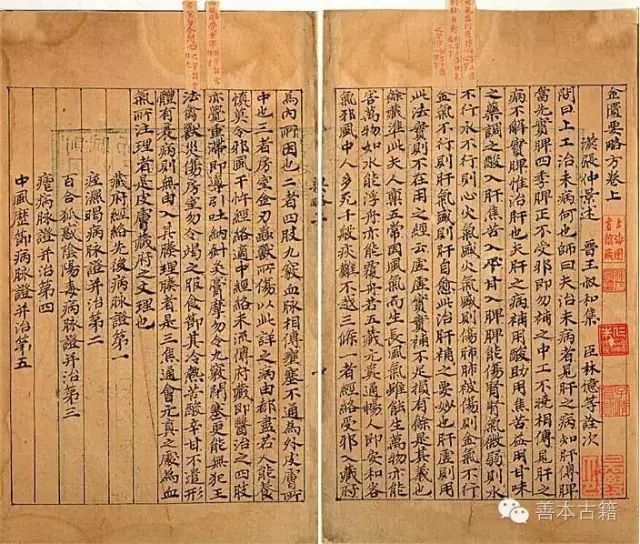 金匱要略方卷上
漢張仲景述 晉王叔和集 臣林億等詮次
問曰上工治未病何也師曰夫治未病者見肝之病知肝傳脾
當先實脾四季脾王不受邪即勿補之中工不曉相傳見肝之
病不解實脾惟治肝也夫肝之病補用酸助用焦苦益用甘味
之藥調之酸入肝焦苦入心甘入脾脾能傷腎腎氣微弱則水
不行水不行則心火氣盛心火氣盛則傷肺肺被傷則金氣不行
金氣不行則肝氣盛則肝自愈此治肝補之要妙也肝虛則用
此法實則不在用之經云虛虛實實補不足損有餘是其義也
餘臟准此夫人稟五常因風氣而生長風氣雖能生萬物亦能
害萬物如水能浮舟亦能覆舟若五臟元真通暢人即安和客
氣邪風中人多死千般疢難不越三條一者經絡受邪入藏府
為內所因也二者四肢九竅血脉相傳壅塞不通為外皮膚所
中也三者房室金刃蟲獸所傷以此詳之病由都盡若人能養
慎莫令邪風干忤經絡適中經絡未流傳府藏即醫治之四肢
亦覺重滯即導引吐納針灸膏摩勿令九竅閉塞更能無犯王
法禽獸災傷房室勿令竭之服食節其冷熱苦酸辛甘不遺形
體有衰病則無由入其腠理腠者是三焦通會元真之處為血
氣所注理者是皮膚藏府之文理也
藏府經絡先後病脉證第一
痓濕暍病脉證并治第二
百合狐惑陰陽毒病脉證并治第三
瘧病脉證并治第四
中風歷節病脉證并治第五
上海圖書館藏
善本古籍